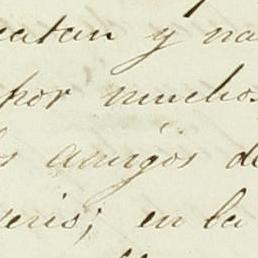 catan y na
por muchos
s amigos de
veris; en la